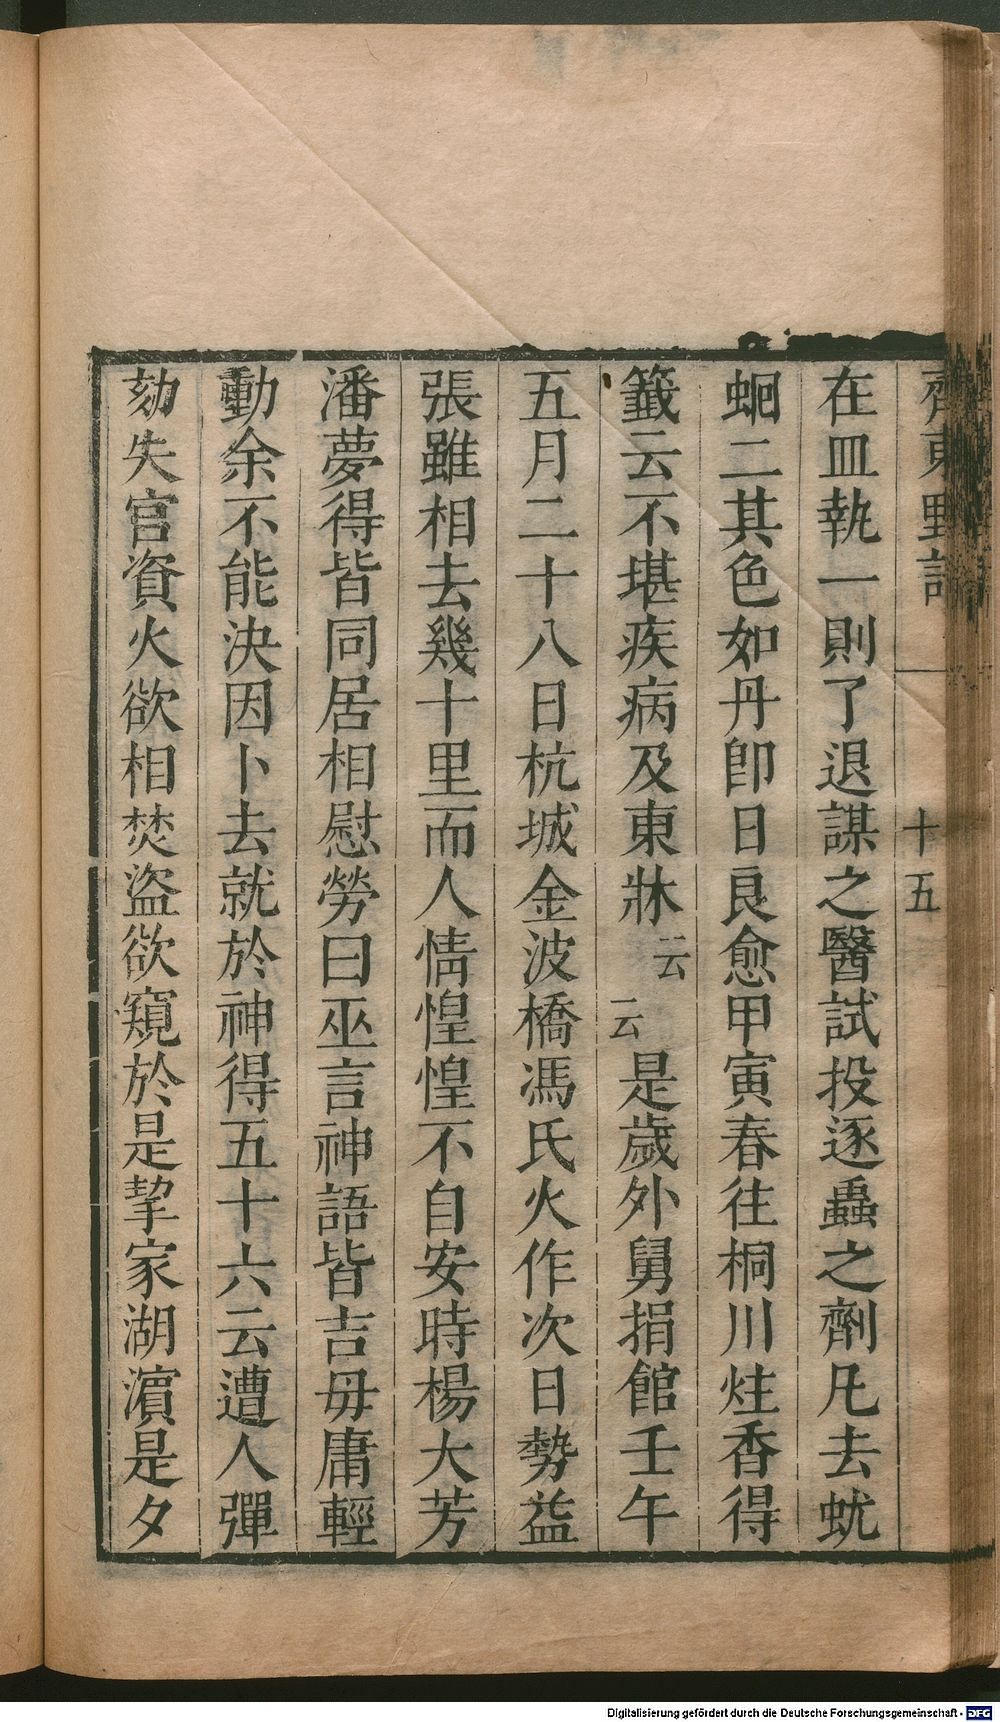 齊東野語
十五
在皿執一則了退謀之醫試投逐蟲之劑凡去蚘
蛔二其色如丹卽日良愈甲寅春往桐川炷香得
籤云不堪疾病及東牀云云是歲外舅捐館壬午
五月二十八日杭城金波橋馮氏火作次日勢益
張雖相去幾十里而人情惶惶不自安時楊大芳
潘夢得皆同居相慰勞曰巫言神語皆吉毋庸輕
動余不能決因卜去就於神得五十六云遭人彈
劾失官資火欲相焚盜欲窺於是挈家湖濵是夕
Digitalisierung gefördert durch die Deutsche Forschungsgemeinschaft - DFG